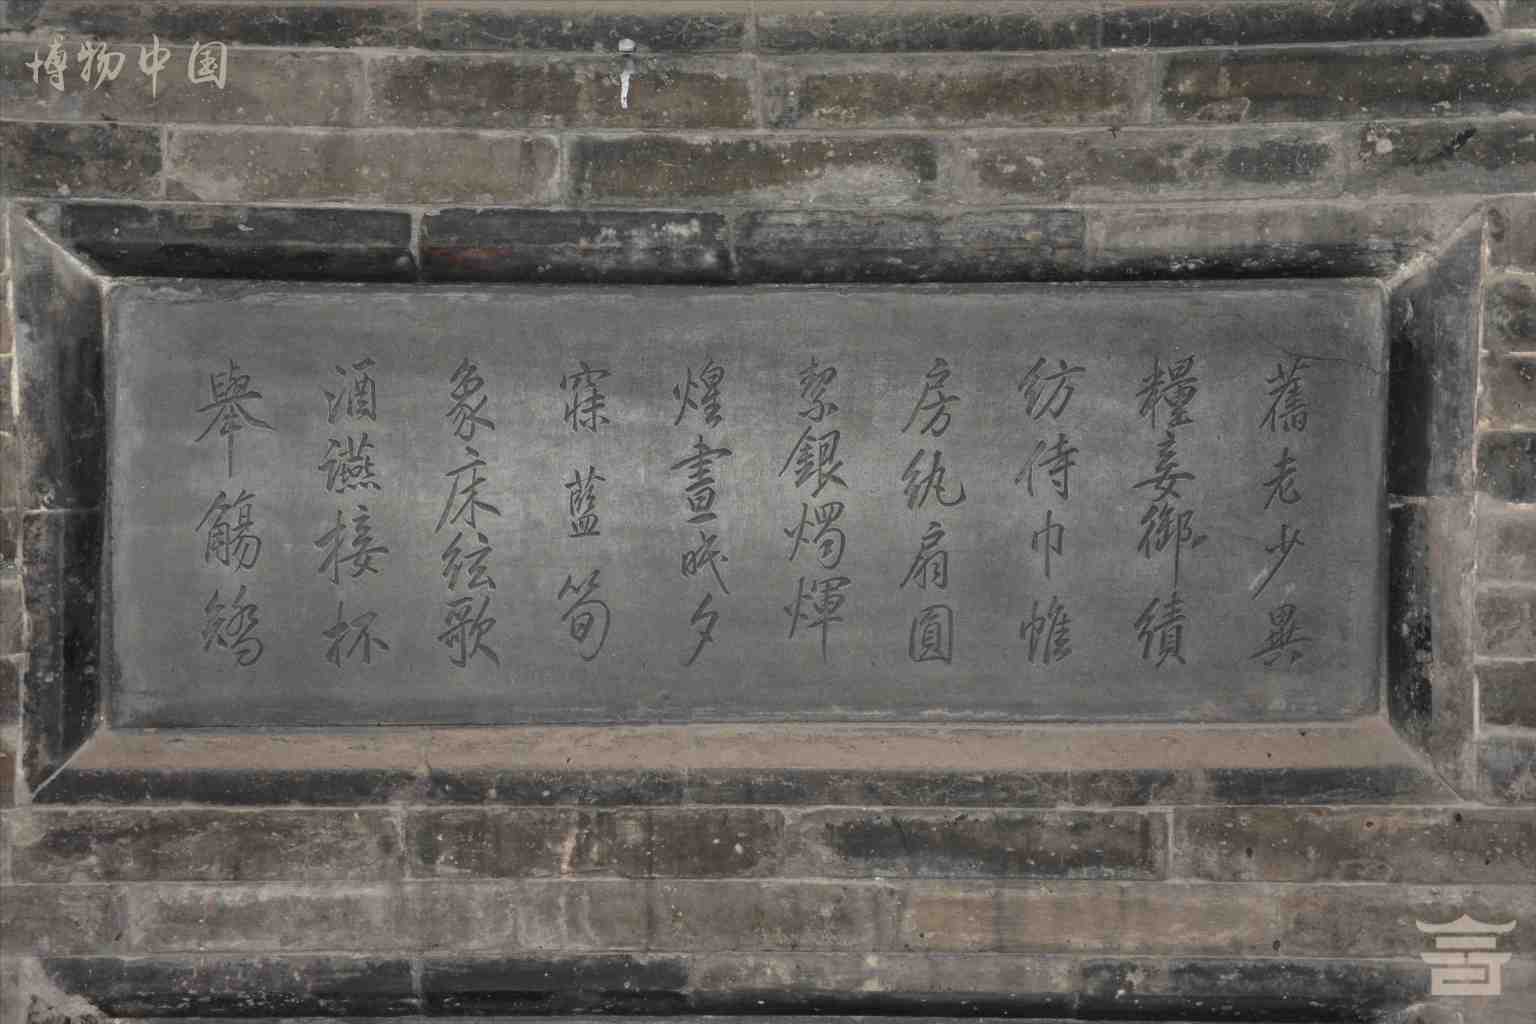 博物中国
舊老少異
糧妾御績
紡侍巾帷
房紈扇圓
絜銀燭煇
煌晝眠夕
寐藍筍
象床絃歌
酒讌接杯
舉觴矯